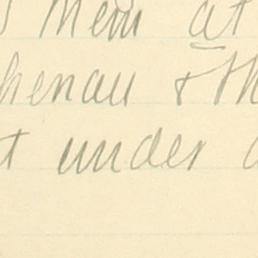 them at
henau + th
t under